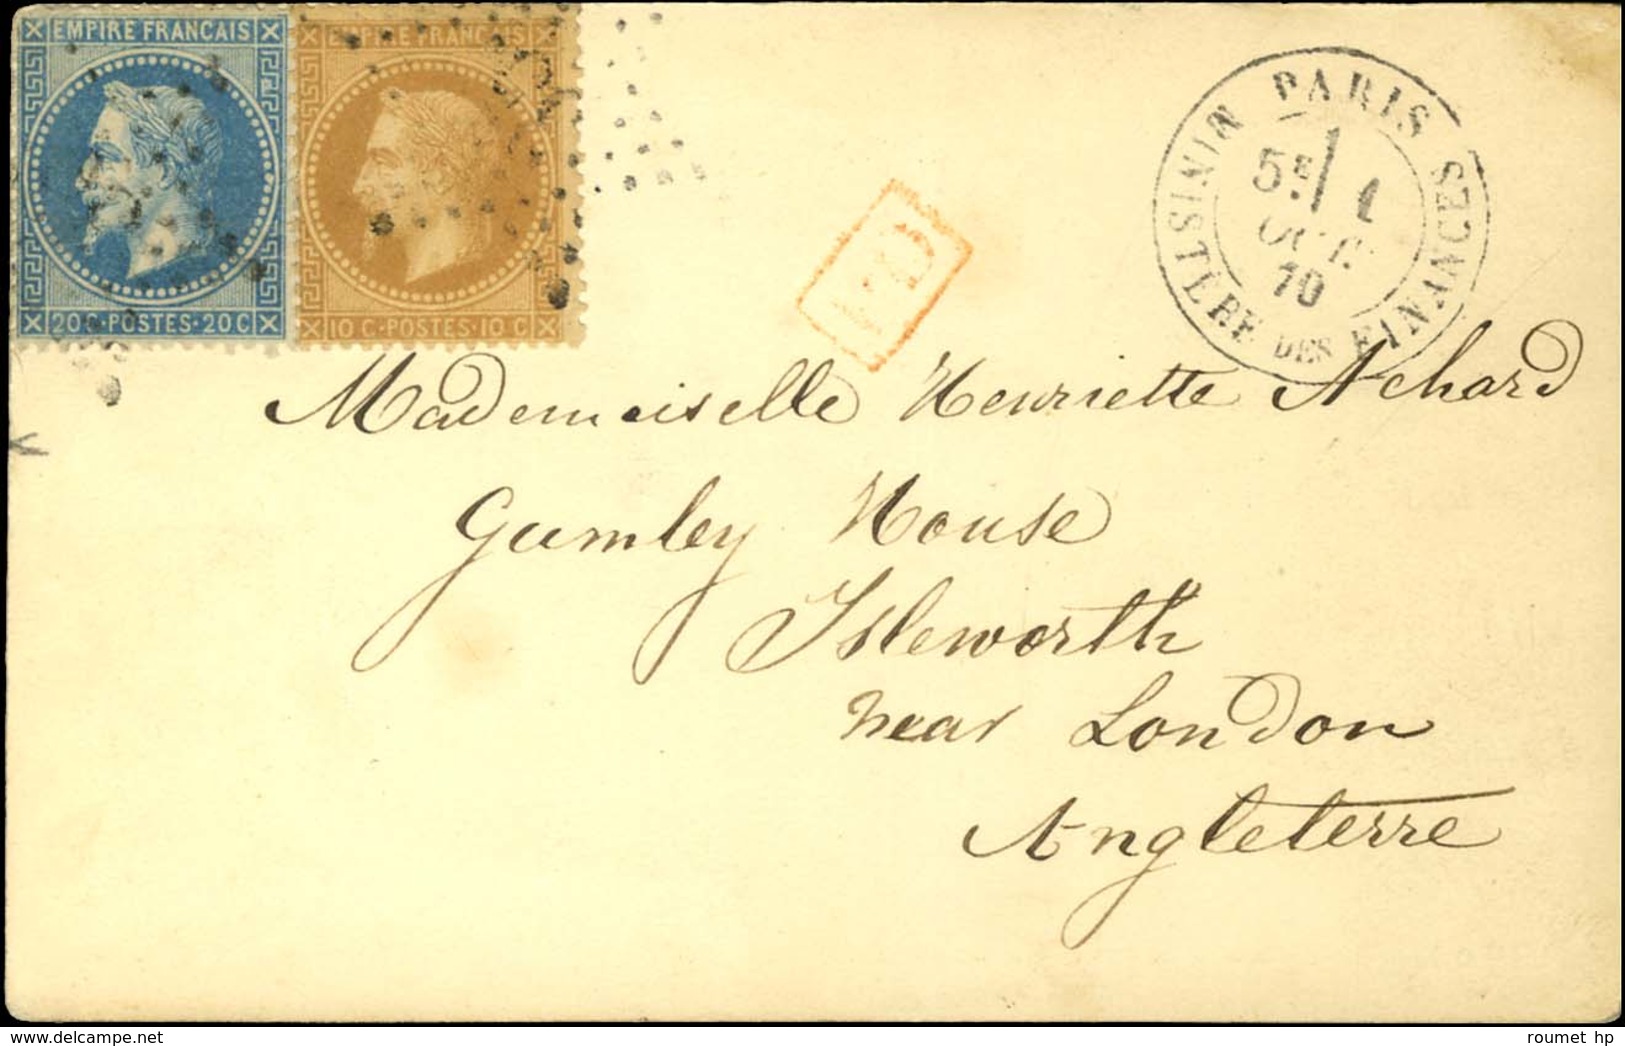 EMPIRE FRANCAIS
20 C·POSTES·20 C
EMPIRE FRANCAIS
10 C·POSTES·10 C
PD
PARIS
MINISTÈRE DES FINANCES
5E 1
OCT.
70
Mademoiselle Henriette Achard
Gumley House
Isleworth
near London
Angleterre
roumet hp